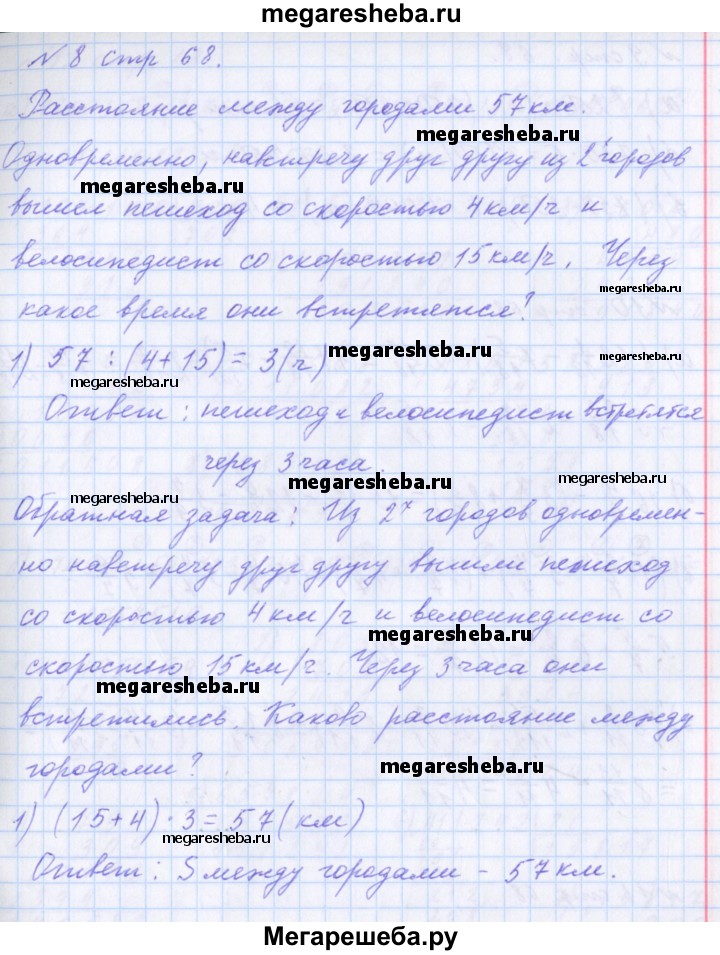 megaresheba.ru
№ 8 стр 68.
Расстояние между городами 57 км.
megaresheba.ru
Одновременно, навстречу друг другу из 2 городов
megaresheba.ru
вышел пешеход со скоростью 4 км/ч и
велосипедист со скоростью 15 км/ч. Через
megaresheba.ru
какое время они встретятся?
1) 57 : (4+15) = 3(ч)
megaresheba.ru
megaresheba.ru
Ответ: пешеход и велосипедист встретятся
через 3 часа.
megaresheba.ru
megaresheba.ru
Обратная задача: Из 2х городов одновремен-
но навстречу друг другу вышли пешеход
со скоростью 4 км/ч и велосипедист со
megaresheba.ru
скоростью 15 км/ч. Через 3 часа они
megaresheba.ru
встретились. Каково расстояние между
городами?
megaresheba.ru
1) (15+4) · 3 = 57 (км)
megaresheba.ru
Ответ: S между городами - 57 км.
Мегарешеба.ру